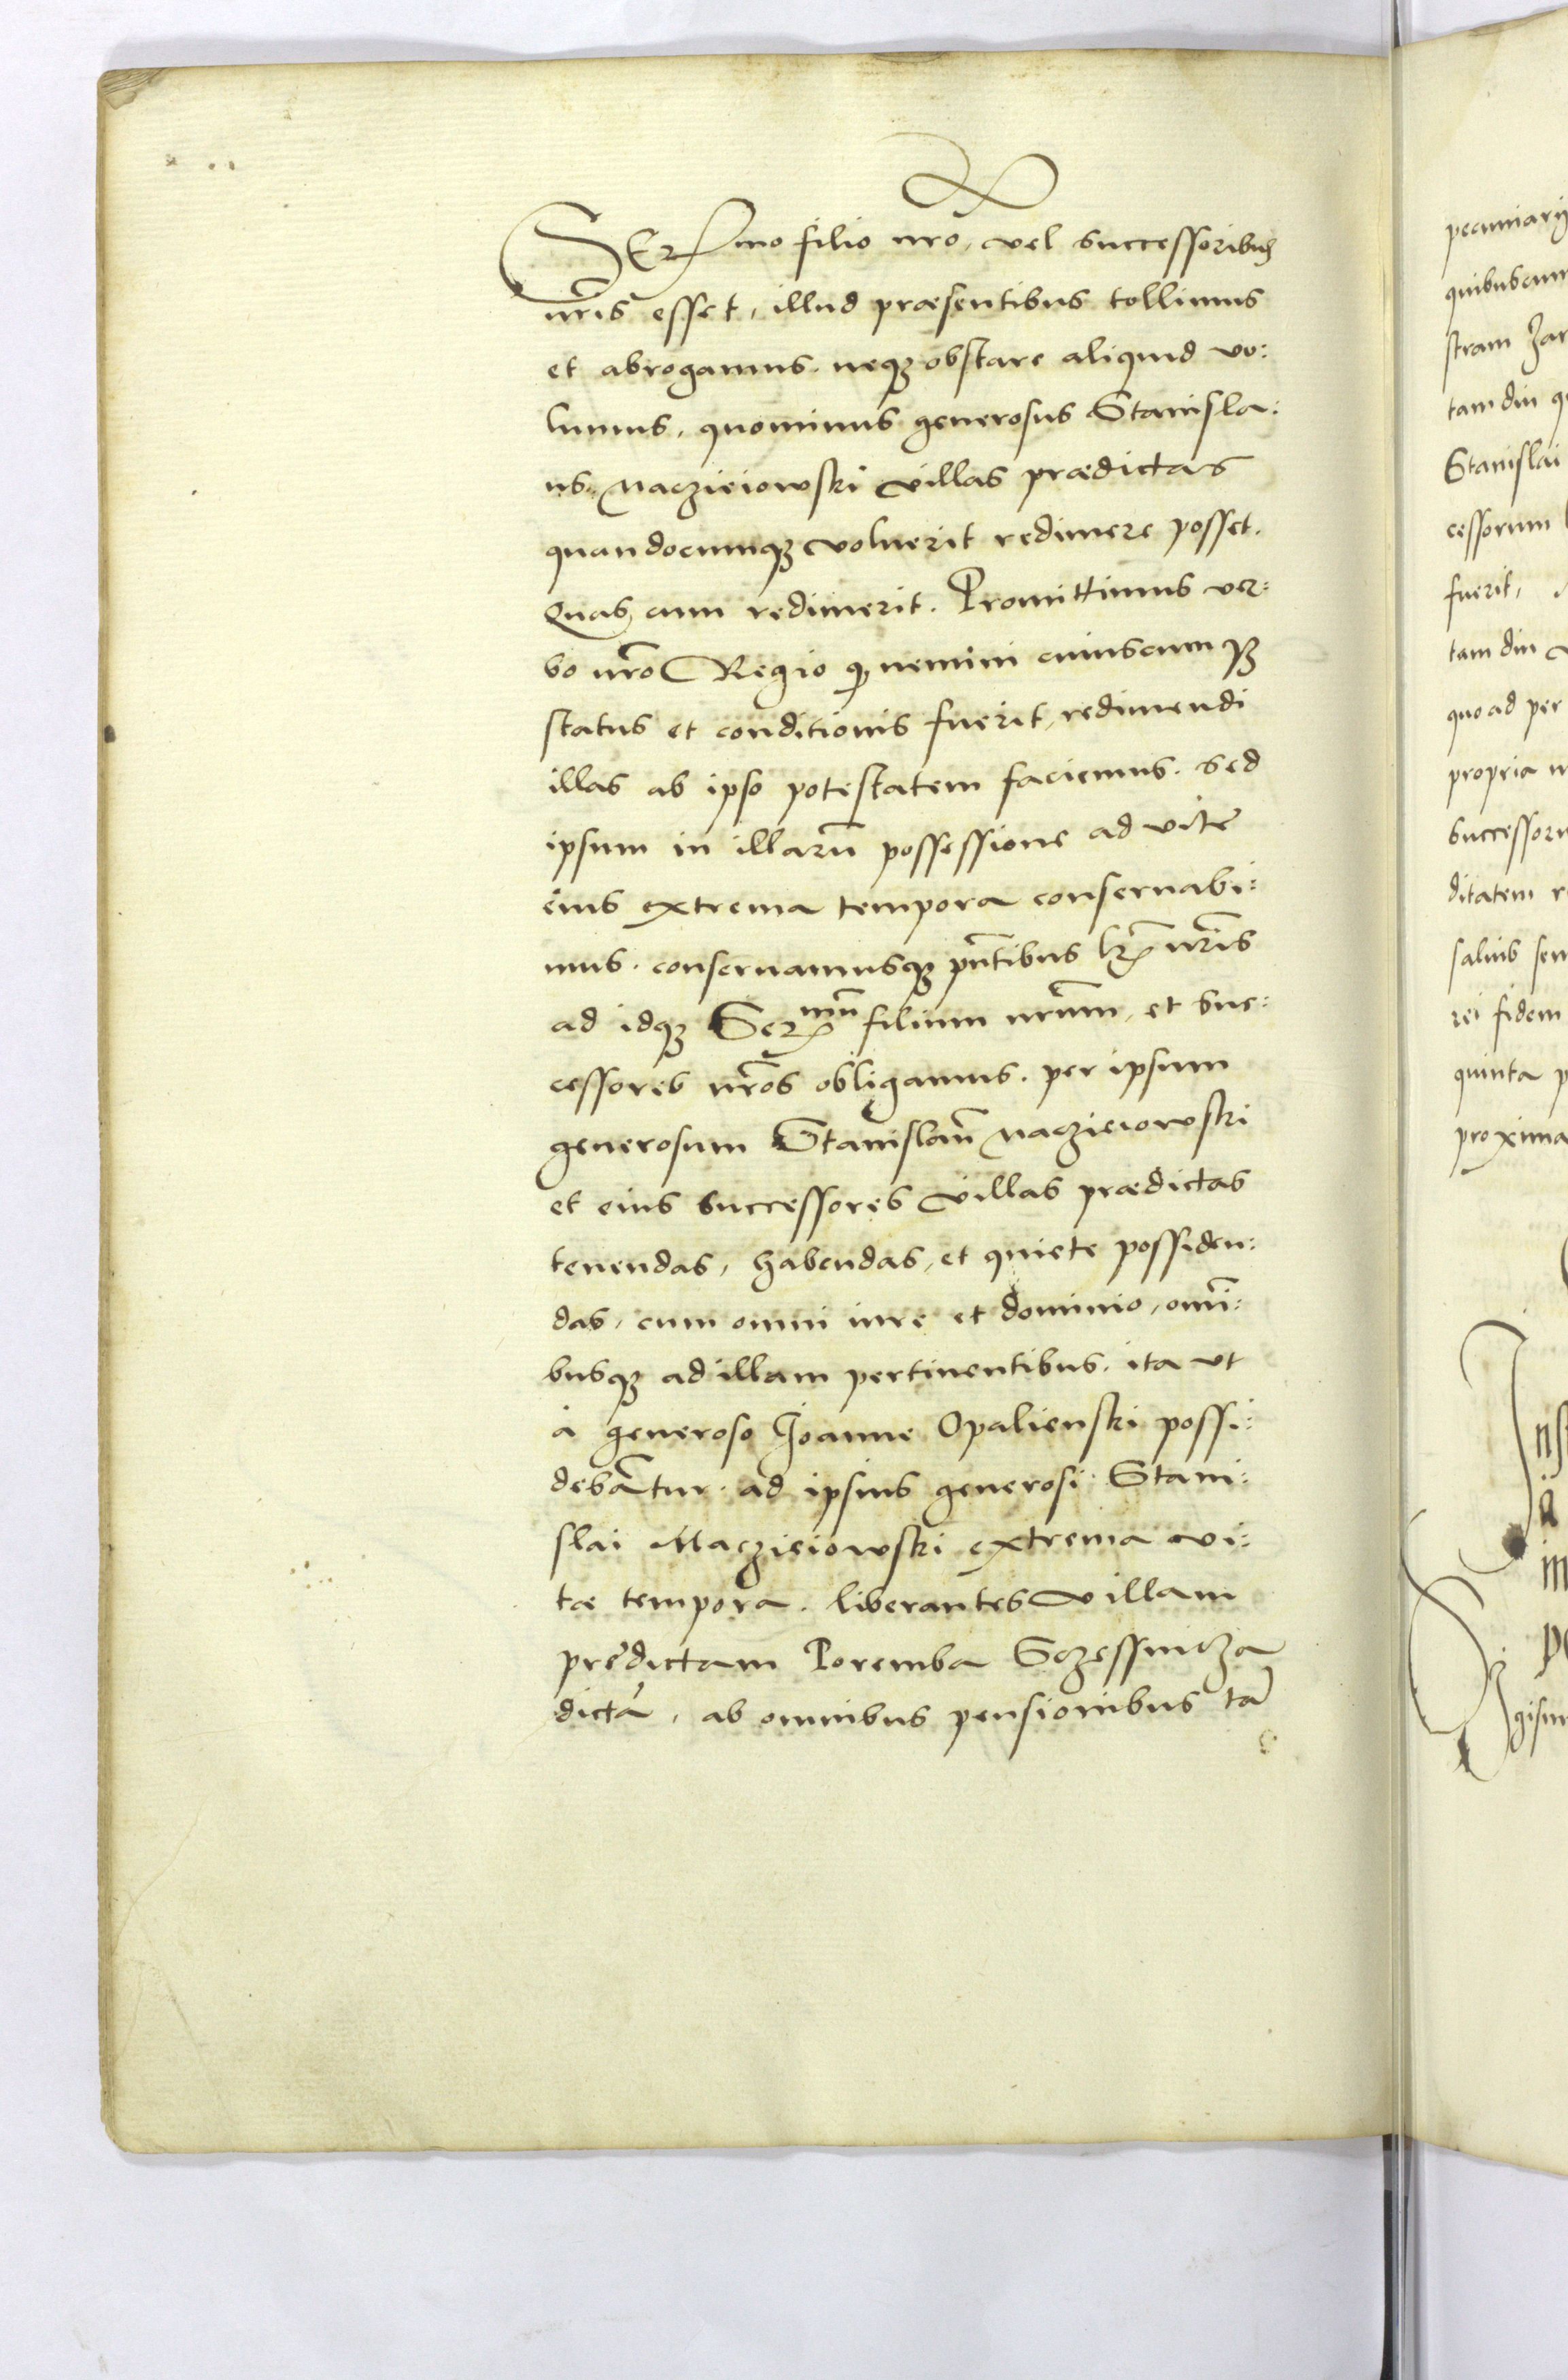 SERmo filio nro, vel successoribus
nr̃is esset, illud præsentibus tollimus
et abrogamus. neqꝫ obstare aliquid vo:
lumus, quominus generosus Stanisla:
us Maczieiowski villas prædictas
quandocumqꝫ voluerit redimere posset.
Quas cum redimerit. Promittimus ver:
bo nr̃o Regio qꝫ nemini cuiuscumqꝫ
status et conditionis fuerit, redimendi
illas ab ipso potestatem faciemus. sed
ipsum in illarũ possessione ad vitę
eius extrema tempora conseruabi:
mus. conseruamusqꝫ pñtibus lr̃is nr̃is
ad idqꝫ Sermũ filium nrũm, et suc:
cessores nr̃os obligamus. per ipsum
generosum Stanislaũ Maczieiowski
et eius successores villas prædictas
tenendas, habendas, et quiete possiden:
das, cum omni iure et dominio, omñi:
busqꝫ ad illam pertinentibus. ita vt
à generoso Joanne Opalienski possi:
debãtur. ad ipsius generosi Stani:
slai Maczieiowski extrema vi:
tæ tempora. liberantes villam
prędictam Poremba Sczessnicza
dictã, ab omnibus pensionibus tã
pecuniarijs
quibuscum
stram
tam diu q
Stanislai
cessorum
fuerit,
tam diu
quo ad per
propria
successoru
ditatem r
saluis
rei fidem
quinta p
proxima